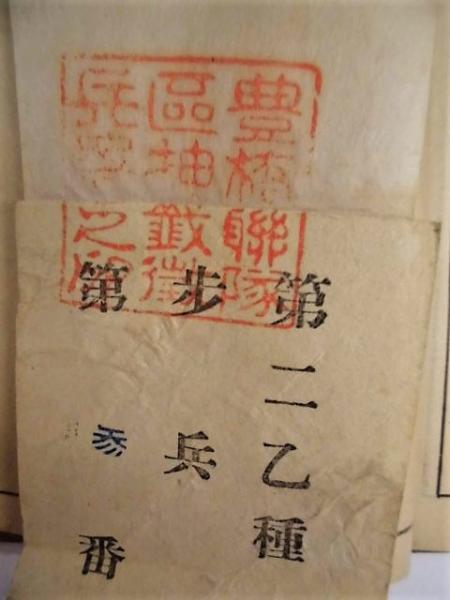 豊橋聯隊
區抽籤徴
兵署之印
第二乙種
步兵
第参番